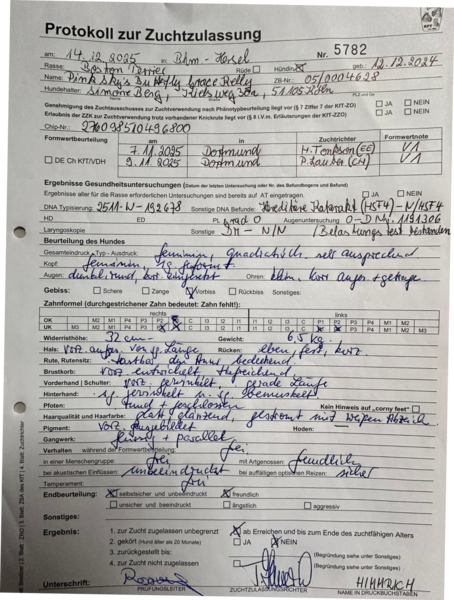 Protokoll zur Zuchtzulassung
am: 14.12.2025 in: Bhm-Hersel Nr. 5782
Rasse: Boston Terrier Rüde Hündin geb.: 12.12.2024
Name: Pink Sky's Butterfly Grace Kelly ZB-Nr.: 05/0004628
Hundehalter: Simone Berg, 51105 Köln
Name Straße PLZ und Ort
Genehmigung des Zuchtausschusses zur Zuchtverwendung nach Phänotypbeurteilung liegt vor (§ 7 Ziffer 7 der KfT-ZO) JA NEIN
Erlaubnis der ZZK zur Zuchtverwendung trotz vorhandener Knickrute liegt vor (§ 8 i.V.m. Erläuterungen der KfT-ZZO) JA NEIN
Chip-Nr.: 276098510496800
Formwertbeurteilung am in Zuchtrichter Formwertnote
7.11.2025 Dortmund (EE) V1
DE Ch KfT/VDH 9.11.2025 Dortmund P. Lauber (CH) V1
Ergebnisse Gesundheitsuntersuchungen (Datum der letzten Untersuchung oder Nr. des Befundbogens und Befund)
Ergebnisse aller für die Rasse erforderlichen Untersuchungen sind bereits auf AT eingetragen.
DNA Typisierung 2511-W-192678 Sonstige DNA Befunde: Hereditäre Katarakt (HSF4) - N/HSF4
HD ED PL Grad 0 Augenuntersuchung 0-D Nr. 1191306
Laryngoskopie Sonstige DM - N/N Belastungstest bestanden
Beurteilung des Hundes
Gesamteindruck - Typ - Ausdruck: feminin, quadratisch, sehr ansprechend
Kopf: feminin, sg geformt
Augen: dunkel, rund, korr eingesetzt Ohren: klein, korr anges. + getragen
Gebiss: Schere Zange Vorbiss Rückbiss Sonstiges:
Zahnformel (durchgestrichener Zahn bedeutet: Zahn fehlt!):
rechts links
OK M2 M1 P4 P3 P2 P1 C I3 I2 I1 I1 I2 I3 C P1 P2 P3 P4 M1 M2
UK M3 M2 M1 P4 P3 P2 P1 C I3 I2 I1 I1 I2 I3 C P1 P2 P3 P4 M1 M2 M3
Widerristhöhe: 32 cm Gewicht: 6,5 kg
Hals: vorz. anges. von sg. Länge Rücken: eben, fest, kurz
Rute, Rutensitz: tastbar, den Anus bedeckend
Brustkorb: vorz. entwickelt + tiefreichend
Vorderhand | Schulter: vorz. gewinkelt, gerade Läufe
Hinterhand: sg gewinkelt u. sg bemuskelt
Pfoten: rund + geschlossen Kein Hinweis auf „corny feet“
Haarqualität und Haarfarbe: glatt, glänzend, gestromt mit weißen Abzeich.
Pigment: vorz. ausgebildet Hoden:
Gangwerk: flüssig + parallel
Verhalten während der Formwertbeurteilung: frei
in einer Menschengruppe: frei mit Artgenossen: freundlich
bei akustischen Einflüssen: unbeeindruckt bei auffälligen optischen Reizen: sicher
Temperament: frei
Endbeurteilung: selbstsicher und unbeeindruckt freundlich
unsicher und beeindruckt ängstlich aggressiv
Sonstiges:
Ergebnis: 1. zur Zucht zugelassen unbegrenzt ab Erreichen und bis zum Ende des zuchtfähigen Alters
2. gekört (Hund älter als 20 Monate) JA NEIN
3. zurückgestellt bis: (Begründung siehe unter Sonstiges)
4. zur Zucht nicht zugelassen (Begründung siehe unter Sonstiges)
Unterschrift: HIMMRICH
PRÜFUNGSLEITER ZUCHTZULASSUNGSRICHTER NAME IN DRUCKBUCHSTABEN